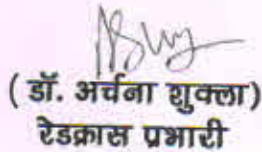 ( डॉ. अर्चना शुक्ला)
रेडक्रास प्रभारी